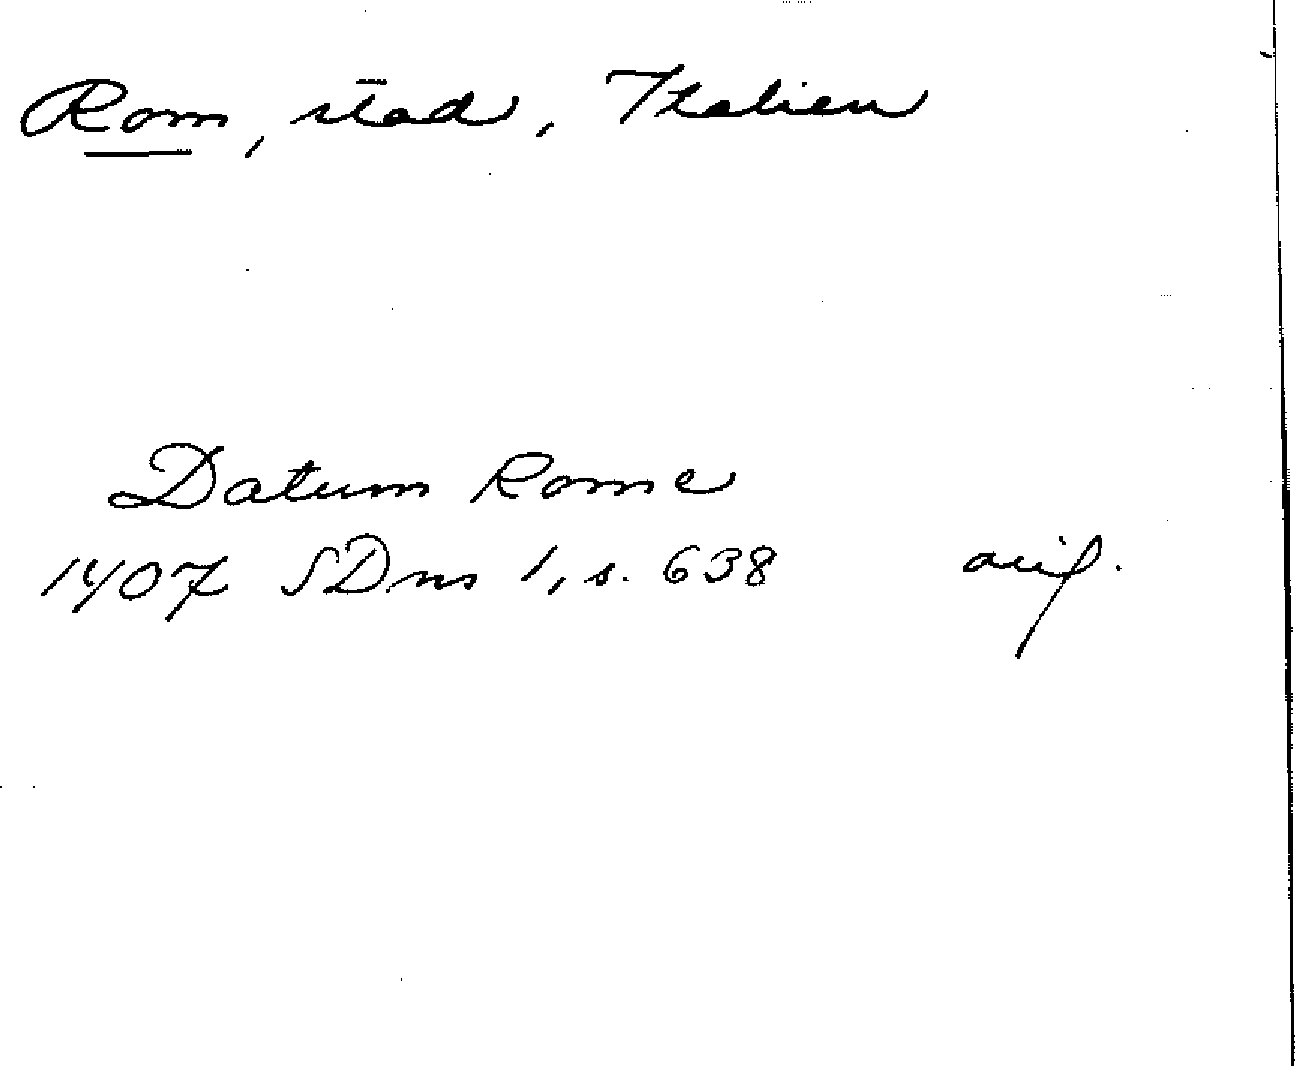 Rom, stad, Italien
Datum Rome
1407 SDns 1, s. 638 avid.